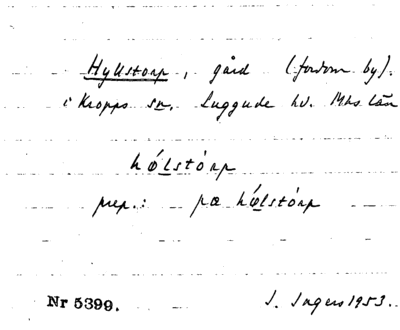 Hyllstorp, gård (fordom by).
i Kropps sn, Luggude hd. Mhs län
hǿlstórp
prep.: pæ hǿlstórp
Nr 5399.
I. Ingers 1953.